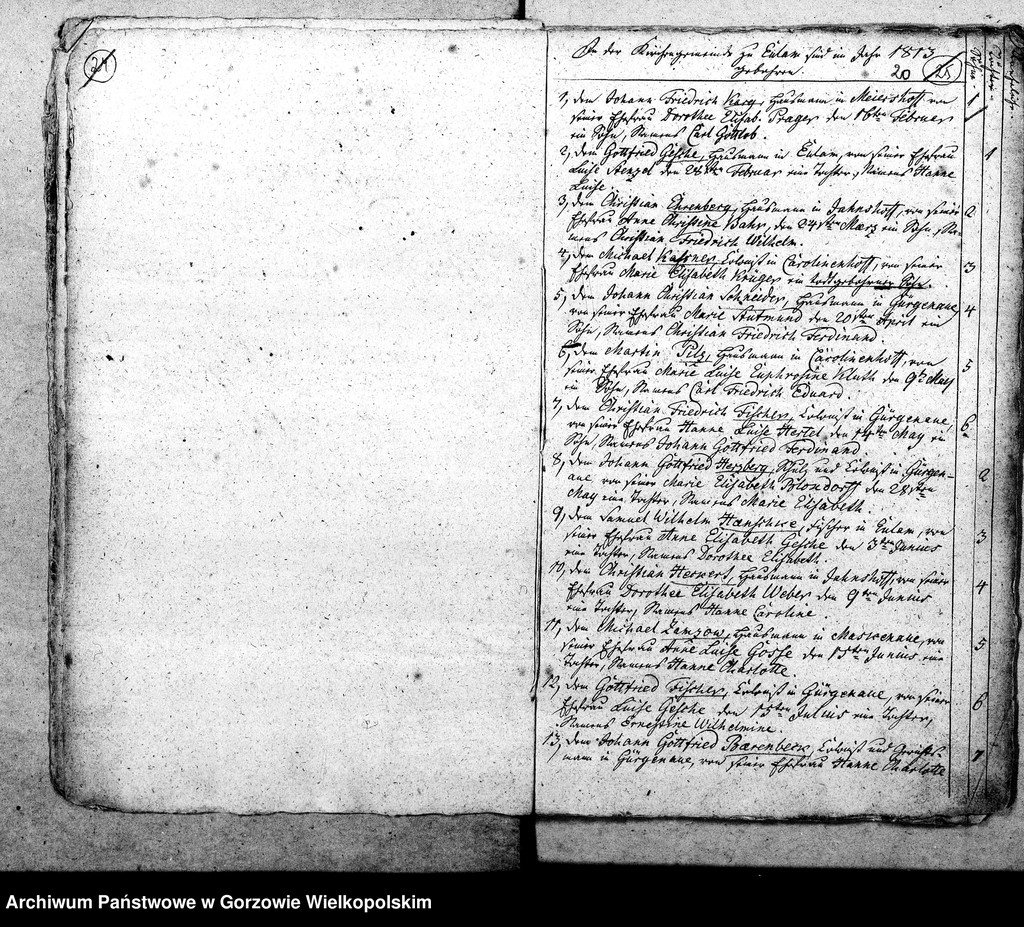 24
In der Kirchengemeinde zu Eulam sind im Jahr 1813
gebohren.
20 25
1, dem Johann Friedrich Karg, Hausmann in Meiershoff von 1
seiner Ehefrau Dorothee Elisab. Prager den 16ten Februar
ein Sohn, Namens Carl Gottlob.
2, dem Gottfried Gesche, Hausmann in Eulam, von seiner Ehefrau 1
Luise Stenzel den 28sten Februar eine Tochter, Namens Hanne
Luise.
3, dem Christian Ehrenberg, Hausmann in Jahnshoff, von seiner 2
Ehefrau Anne Christine Bahr, den 24sten Maerz ein Sohn, Na-
mens Christian Friedrich Wilhelm.
4, dem Michael Kassner, Colonist in Carolinenhoff, von seiner 3
Ehefrau Marie Elisabeth Krüger ein todtgebohrner Sohn.
5, dem Johann Christian Schneider, Hausmann in Gürgenaue, 4
von seiner Ehefrau Marie Stutmund den 20sten April ein
Sohn, Namens Christian Friedrich Ferdinand.
6, dem Martin Pilz, Hausmann in Carolinenhoff, von 5
seiner Ehefrau Marie Luise Euphrosine Kluth den 9t May
ein Sohn, Namens Carl Friedrich Eduard.
7, dem Christian Friedrich Fischer, Colonist in Gürgenaue, 6
von seiner Ehefrau Hanne Luise Hertel den 14ten May ein
Sohn, Namens Johann Gottfried Ferdinand.
8, dem Johann Gottfried Herzberg, Schulz und Colonist in Gürgen- 2
aue, von seiner Marie Elisabeth Blondorff den 28sten
May eine Tochter, Namens Marie Elisabeth.
9, dem Samuel Wilhelm Haenschke, Fischer in Eulam, von 3
seiner Ehefrau Anne Elisabeth Gesche den 3ten Junius
eine Tochter, Namens Dorothee Elisabeth.
10, dem Christian Herkert, Hausmann in Jahnshoff, von seiner 4
Ehefrau Dorothee Elisabeth Weber den 9ten Junius
eine Tochter, Namens Hanne Caroline.
11, dem Michael Zamzow, Hausmann in Maskenaue, von 5
seiner Ehefrau Anne Luise Gosse den 15ten Junius eine
Tochter, Namens Hanne Charlotte.
12, dem Gottfried Fischer, Colonist in Gürgenaue, von seiner 6
Ehefrau Luise Gesche den 15ten Julius eine Tochter,
Namens Ernestine Wilhelmine.
13, dem Johann Gottfried Baerenbeck, Colonist und Gerichts- 7
mann in Gürgenaue, von seiner Ehefrau Hanne Charlotte
Archiwum Państwowe w Gorzowie Wielkopolskim